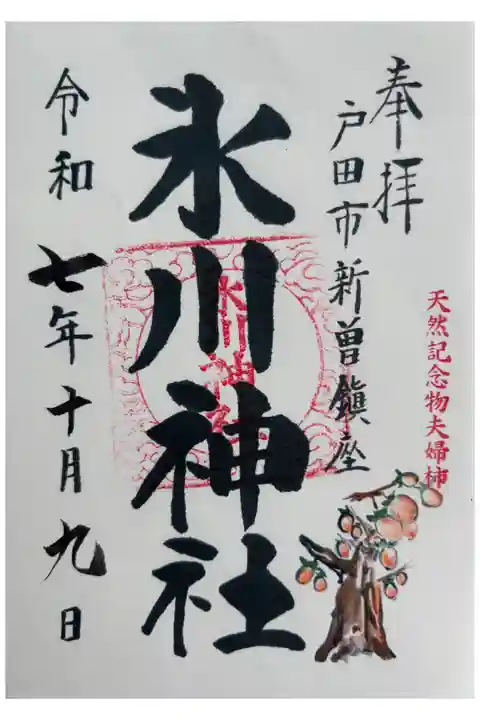 天然記念物夫婦柿
奉拝
戸田市新曽鎮座
氷川神社
氷川神社
令和七年十月九日